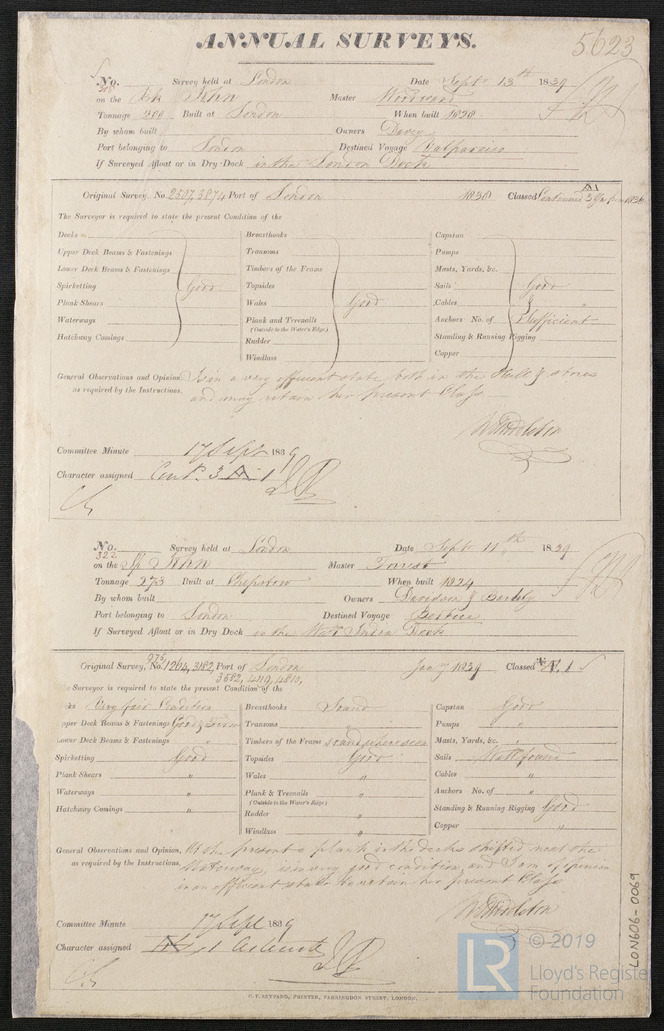 ANNUAL SURVEYS.
5623
No. Survey held at London Date Sept 13th 1839
on the John Master Woodward
Tonnage Built at London When built 1828
By whom built Owners Davey
Port belonging to London Destined Voyage Valparaiso
If Surveyed Afloat or in Dry Dock in the London Docks
Original Survey, No. 2507, 3874 Port of London 1838 Classed A1 Continued 3 Yrs from 1836
The Surveyor is required to state the present Condition of the
Decks Breasthooks Capstan
Upper Deck Beams & Fastenings Transoms Pumps
Lower Deck Beams & Fastenings Timbers of the Frame Masts, Yards, &c.
Spirketting Good Topsides Sails Good
Plank Shears Wales Good Cables &
Waterways Plank and Treenails Anchors No. of Sufficient
(Outside to the Water's Edge.)
Hatchway Comings Rudder Standing & Running Rigging
Windlass Copper
General Observations and Opinion, Is in a very efficient state both in the Hull & stores
as required by the Instructions. and may retain her present Class
Wm Middleton
Committee Minute 17 Sept 1839
Character assigned Cont. 3 A 1
No. Survey held at London Date Sept 11th 1839
322
on the Sp John Master Forrest
Tonnage 273 Built at Chepstow When built 1824
By whom built Owners Davidson &
Port belonging to London Destined Voyage Berbice
If Surveyed Afloat or in Dry Dock in the West India Docks
Original Survey, No. 1204, 3182, Port of London Jany 1839 Classed Æ 1
3682, 4119, 4810,
Surveyor is required to state the present Condition of the
Very fair Condition Breasthooks Sound Capstan Good
pper Deck Beams & Fastenings Good & Firm Transoms " Pumps "
Lower Deck Beams & Fastenings " Timbers of the Frame sound where seen Masts, Yards, &c. "
Spirketting Good Topsides Good Sails Well found
Plank Shears " Wales " Cables "
Waterways " Plank & Treenails " Anchors No. of "
(Outside to the Water's Edge.)
Hatchway Comings " Rudder " Standing & Running Rigging Good
Windlass " Copper "
General Observations and Opinion, At the present a plank in the decks shifted next the
as required by the Instructions. Waterway, is in very good condition and I am of opinion
in an efficient state to retain her present Class
Wm Middleton
Committee Minute 17 Sept 1839
Character assigned Æ 1
LON606-0069
LR
© 2019
Lloyd's Register
Foundation